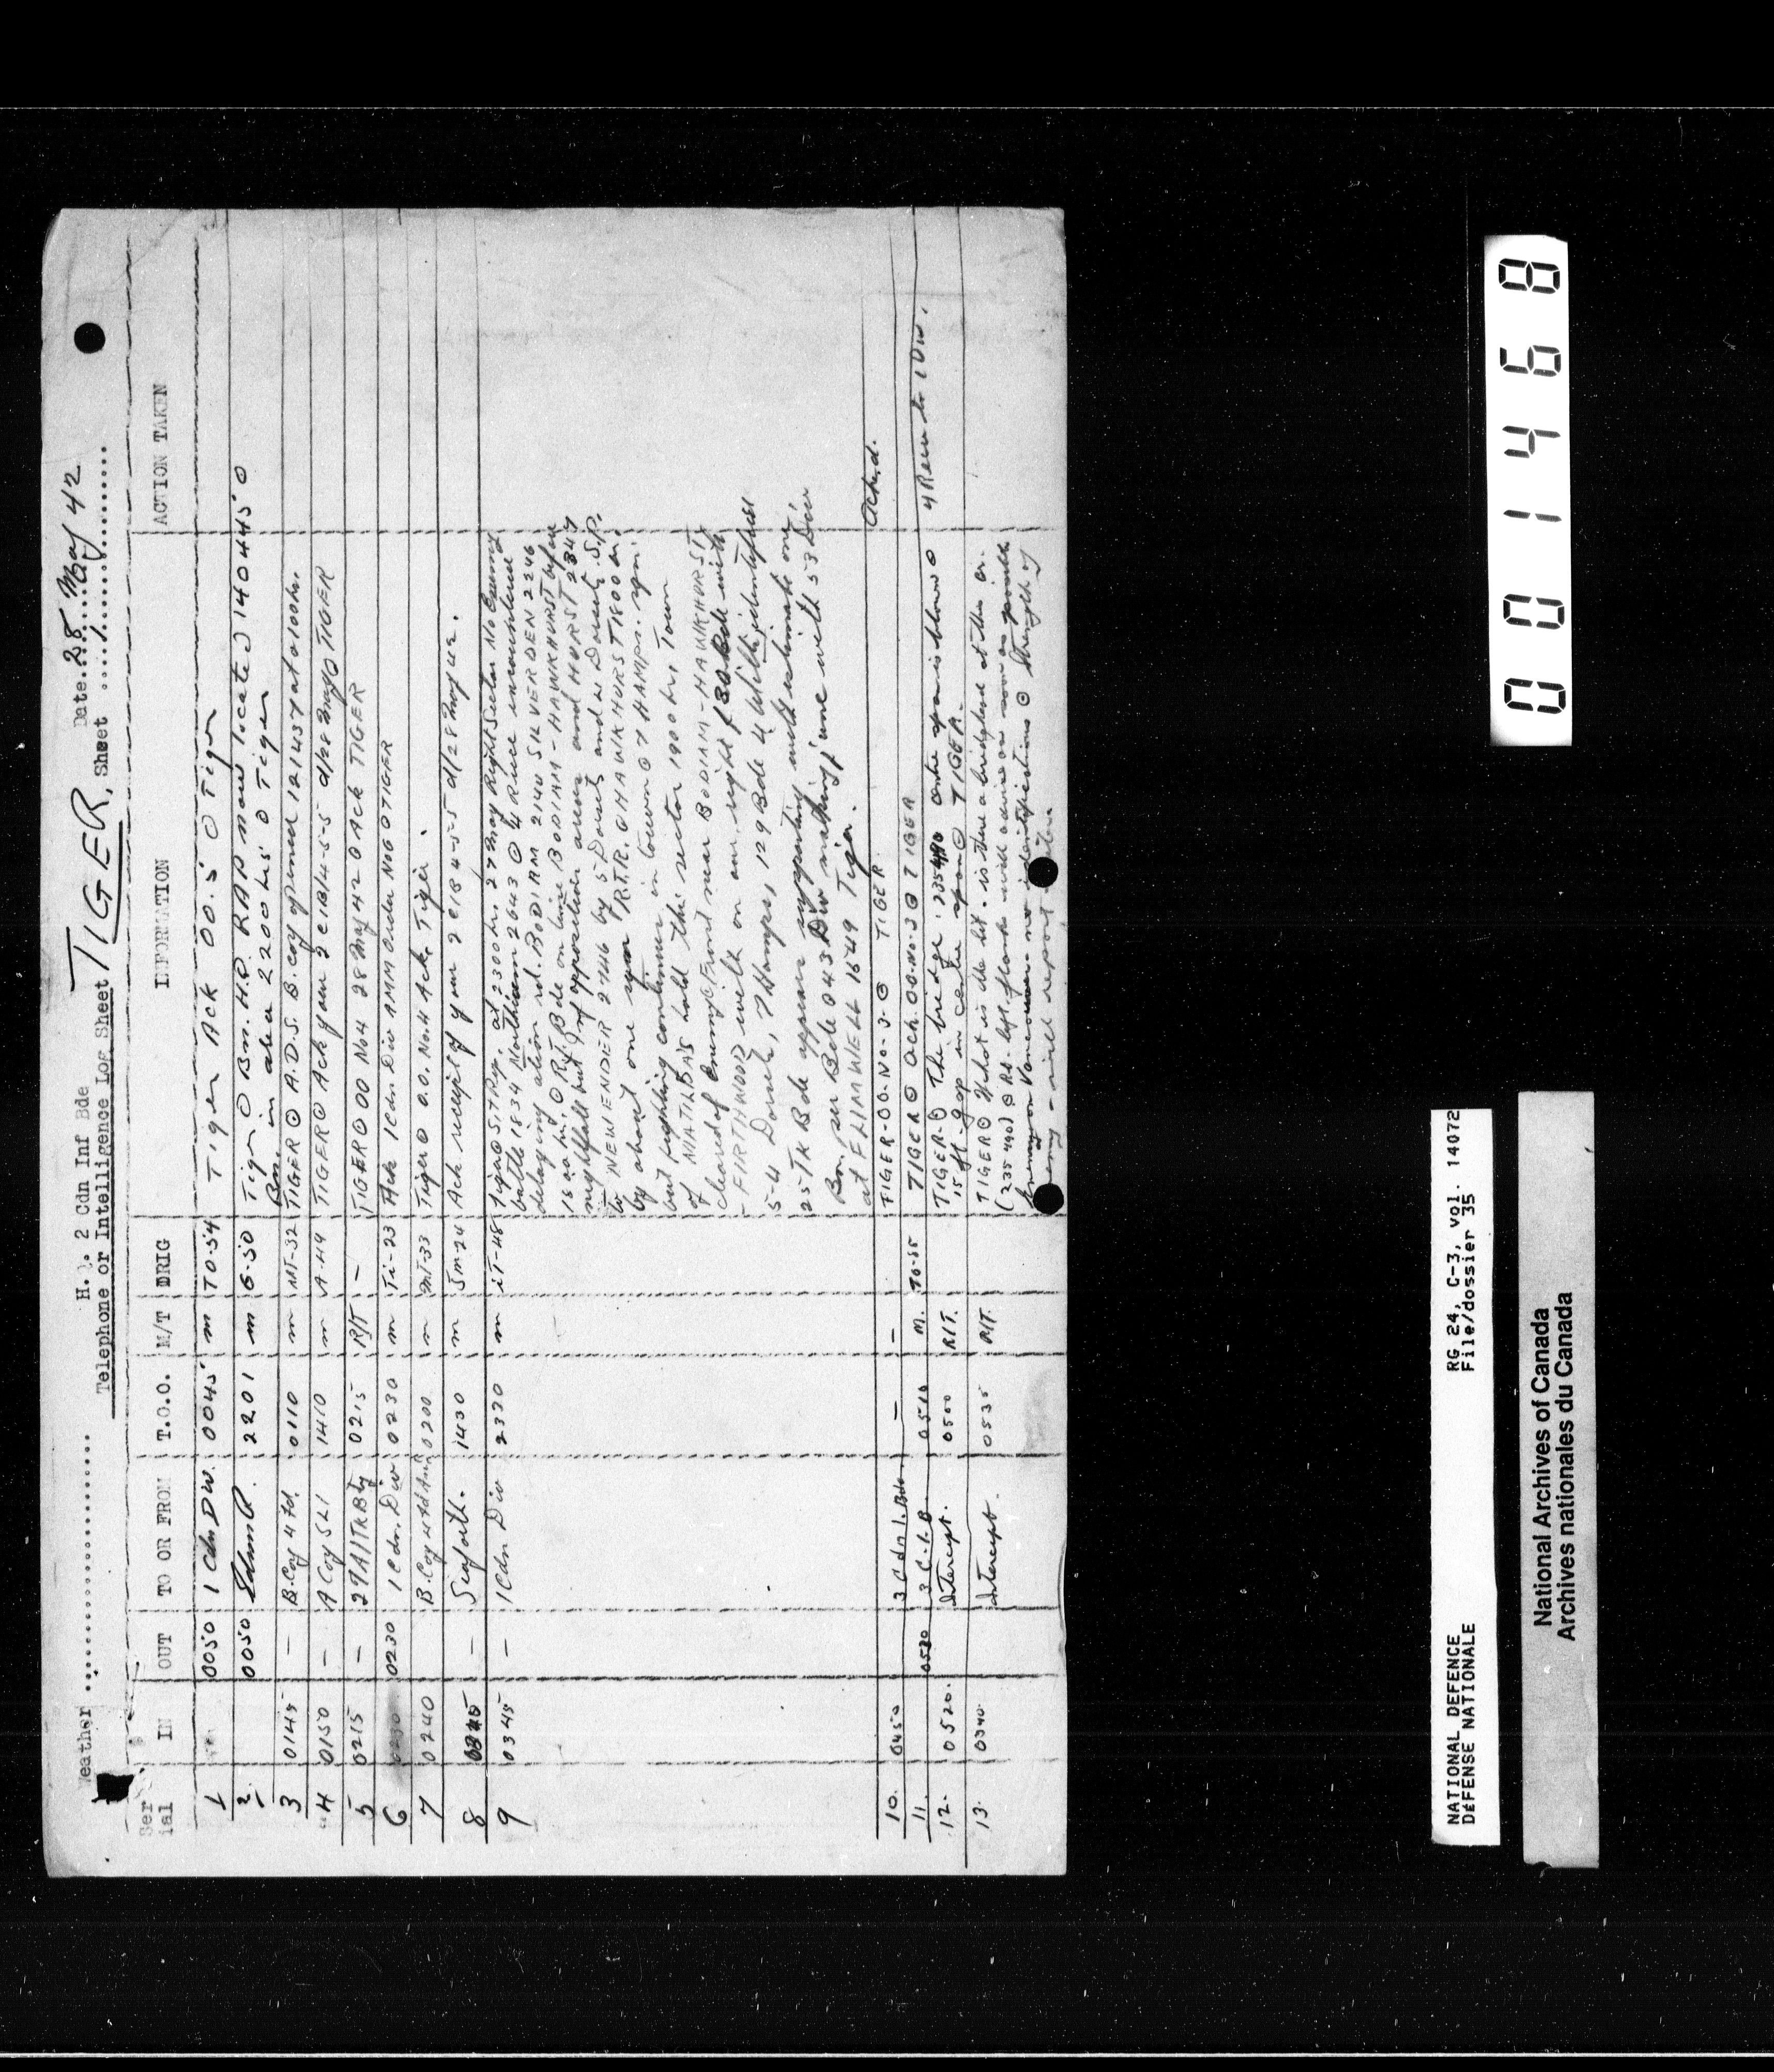 H.Q. 2 Cdn Inf Bde
Weather .............. Telephone or Intelligence Log Sheet TIGER, Sheet Date 28 May 42
Ser ial IN OUT TO OR FROM T.O.O. M/T ORIG INFORMATION ACTION TAKEN
1 0050 1 Cdn Div. 0045 m TO-54 Tiger Ack 00.5 O Tiger
2 0050 Edmn R. 2201 m G-50 Tiger O Bn. H.Q. RAP now located 1404450
Bn. in area 2200 hrs O Tiger
3 0145 — B. Coy 4 Fd. 0110 m MT-32 TIGER O A.D.S. B. coy opened 121437 at 0100 hr.
4 0150 — A Coy SLI 1410 m A-49 TIGER O Ack your 2 e1B/4-5-5 d/28 May O TIGER
5 0215 — 27 A/Tk Bty 0215 R/T — TIGER O OO No 4 28 May 42 O Ack TIGER
6 0230 0230 1 Cdn. Div 0230 m Ti-23 Ack 1 Cdn Div AMM Order No 6 O TIGER
7 0240 B. Coy 0200 m MT-33 Tiger O O.O. No. 4 Ack. Tiger.
8 — Seaforth. 1430 m Sm-24 Ack receipt of your 2 e1B 4-5-5 d/28 May 42.
9 0345 — 1 Cdn Div 2330 m iT-48 Tiger O SITREP. at 2300 hr. 27 May Right Sector No Enemy
battle 1834 Northiam 2643 O 4 Recce encountered
delaying action rd. BODIAM 2140 SILVERDEN 2246
1800 hrs. O Rif. Bde on line BODIAM - HAWKHURST before
nightfall but Inf opposition across and HURST 2347
to NEWENDEN 2746 by 5 Dorsets and 4 Dorsets S.P.
by about one sqn R.T.R. O HAWKHURST 1800 hr.
but fighting continues in town O 7 HAMPS. sqn.
of MATILDAS hold this sector 1900 hrs. Town
cleared of Enemy O Front near BODIAM - HAWKHURST
- FIRTHWOOD with on our right 130 Bde with
5-4 Dorsets, 7 Hamps, 129 Bde 4 Wilts identified
25 TK Bde appears supporting with estimate one
Bn. per Bde O 43 Div making June with 53 Div
at FLIMWELL 1649 Tiger.
10. 0450 3 Cdn I. Bde — — TIGER-OO-No-3-O TIGER. Ackd.
11. 0520 3 C.I.B 0510 M. TO-55 TIGER O Ack. OO-No-3 O TIGER
12. 0520. Intercept. 0500 R/T. TIGER-O The bridge 235490 centre span is blown O 4 Recce to 1 Div.
15 ft. gap in centre span O TIGER.
13. 0540 Intercept. 0535 R/T. TIGER O What is the bit. is there a bridgehead at this cr.
(235490) O Rd. left flank will advise as soon as possible
Vancouver no identifications O Strength of
enemy - will report later.
001468
NATIONAL DEFENCE RG 24, C-3, vol. 14072
DÉFENSE NATIONALE File/dossier 35
National Archives of Canada
Archives nationales du Canada